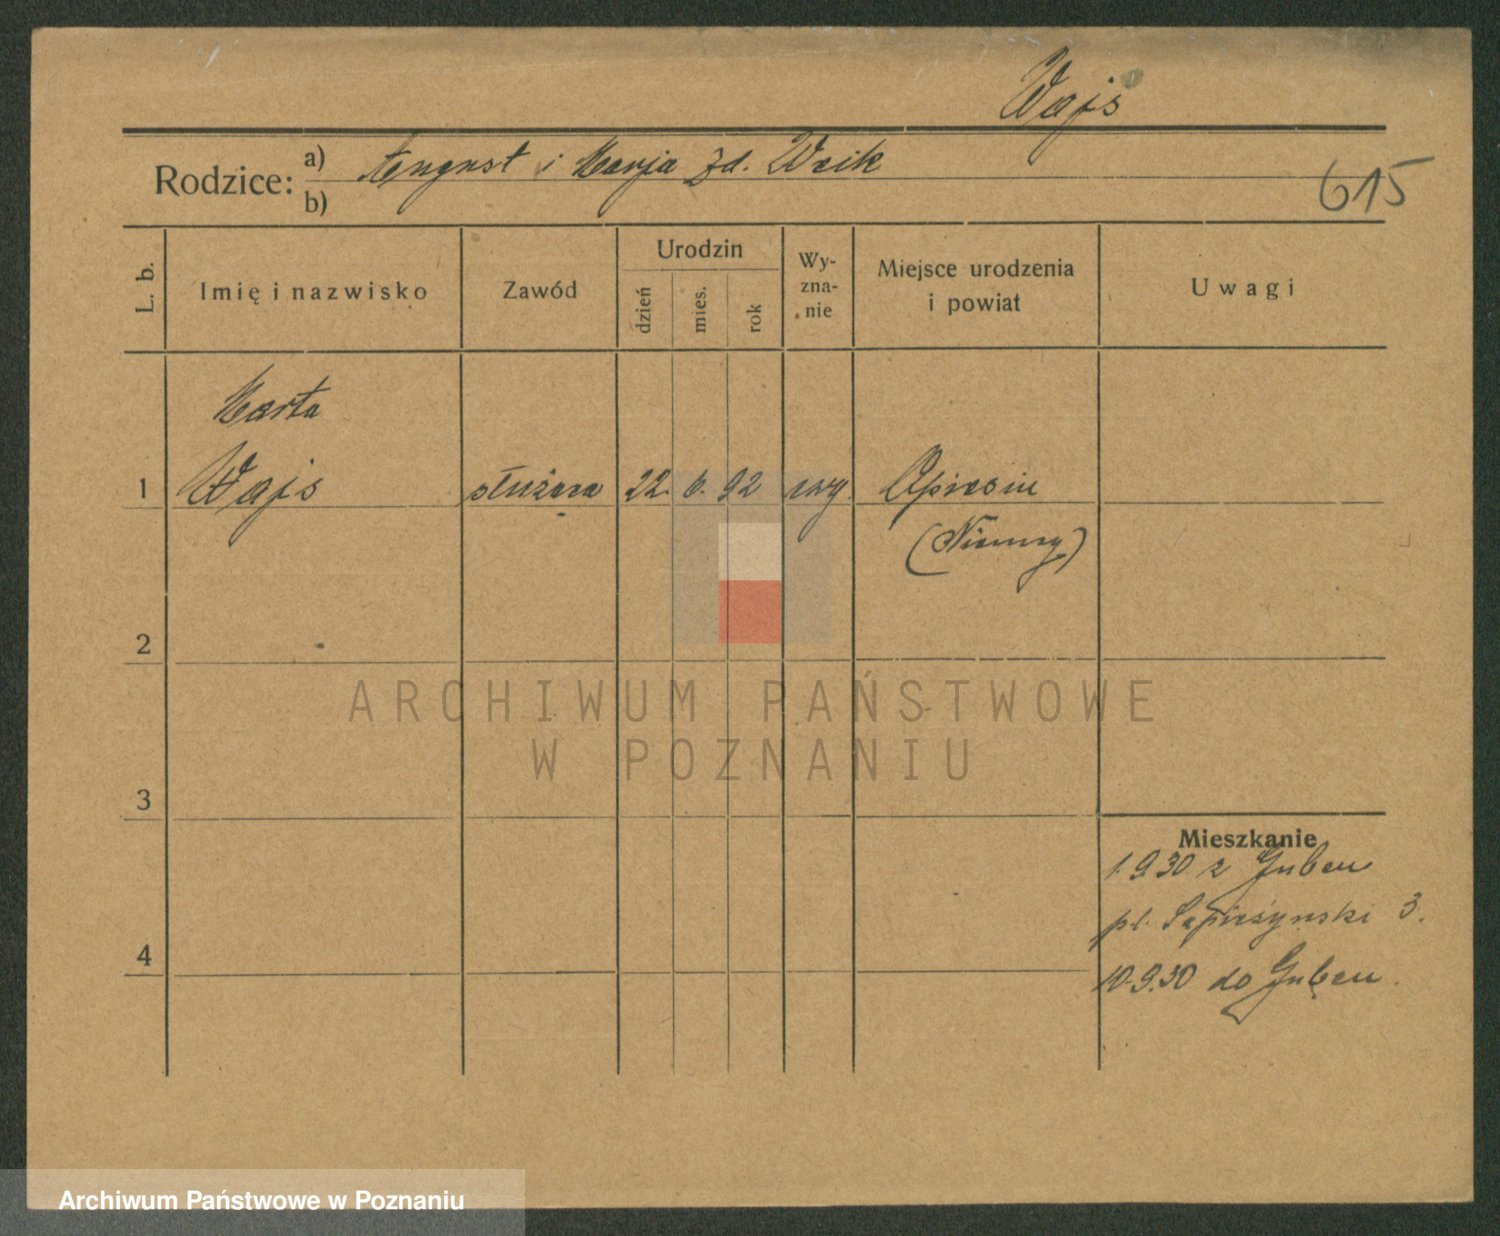 Wajs
Rodzice: a) August i Marja zd. Weik
b)
615
L. b.
Imię i nazwisko
Zawód
Urodzin
dzień
mies.
rok
Wy-
zna-
nie
Miejsce urodzenia
i powiat
Uwagi
Marta
1 Wajs służąca 22. 6. 92 ewg.
(Niemcy)
2
3
4
Mieszkanie
1.9.30 z Guben
pl. Sapieżynski 3.
10.9.30 do Guben.
ARCHIWUM PAŃSTWOWE
W POZNANIU
Archiwum Państwowe w Poznaniu